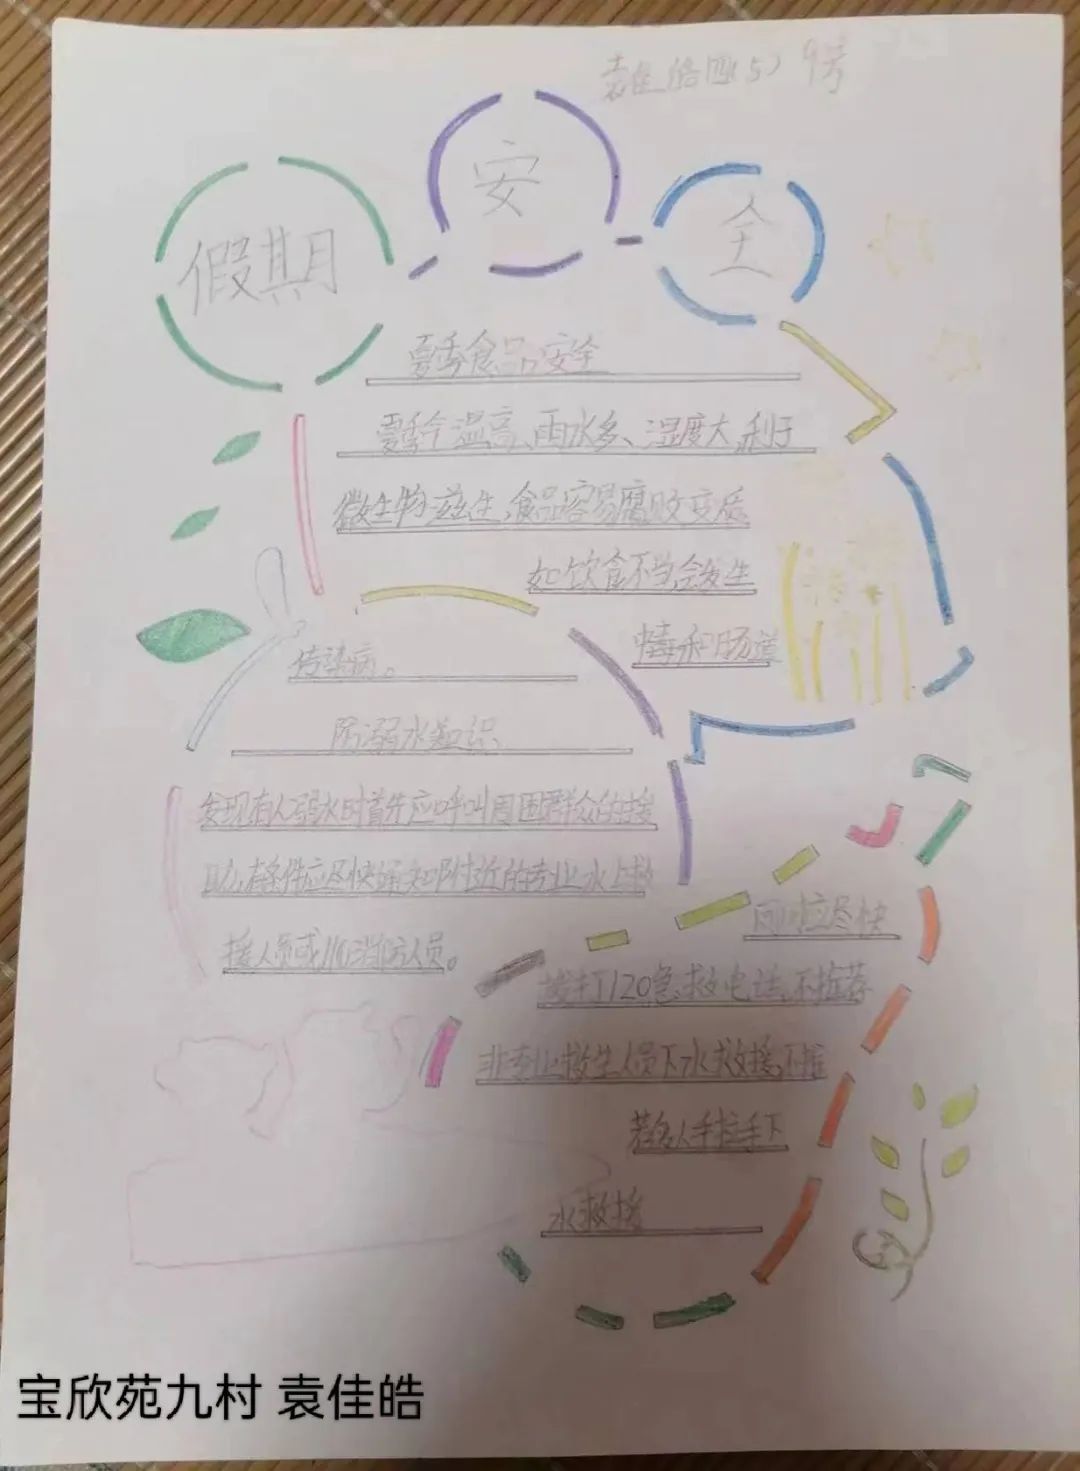 袁佳皓四(5) 9号
假期
安
全
夏季食品安全
夏季气温高、雨水多、湿度大,利于
微生物滋生,食品容易腐败变质
如饮食不当,会发生
中毒和肠道
传染病。
防溺水知识
发现有人溺水时首先应呼叫周围群众的援
助,有条件应尽快通知附近的专业水上救
援人员或110消防人员。
同时应尽快
拨打120急救电话,不推荐
非专业救生人员下水救援,不推
荐多人手拉手下
水救援
宝欣苑九村 袁佳皓